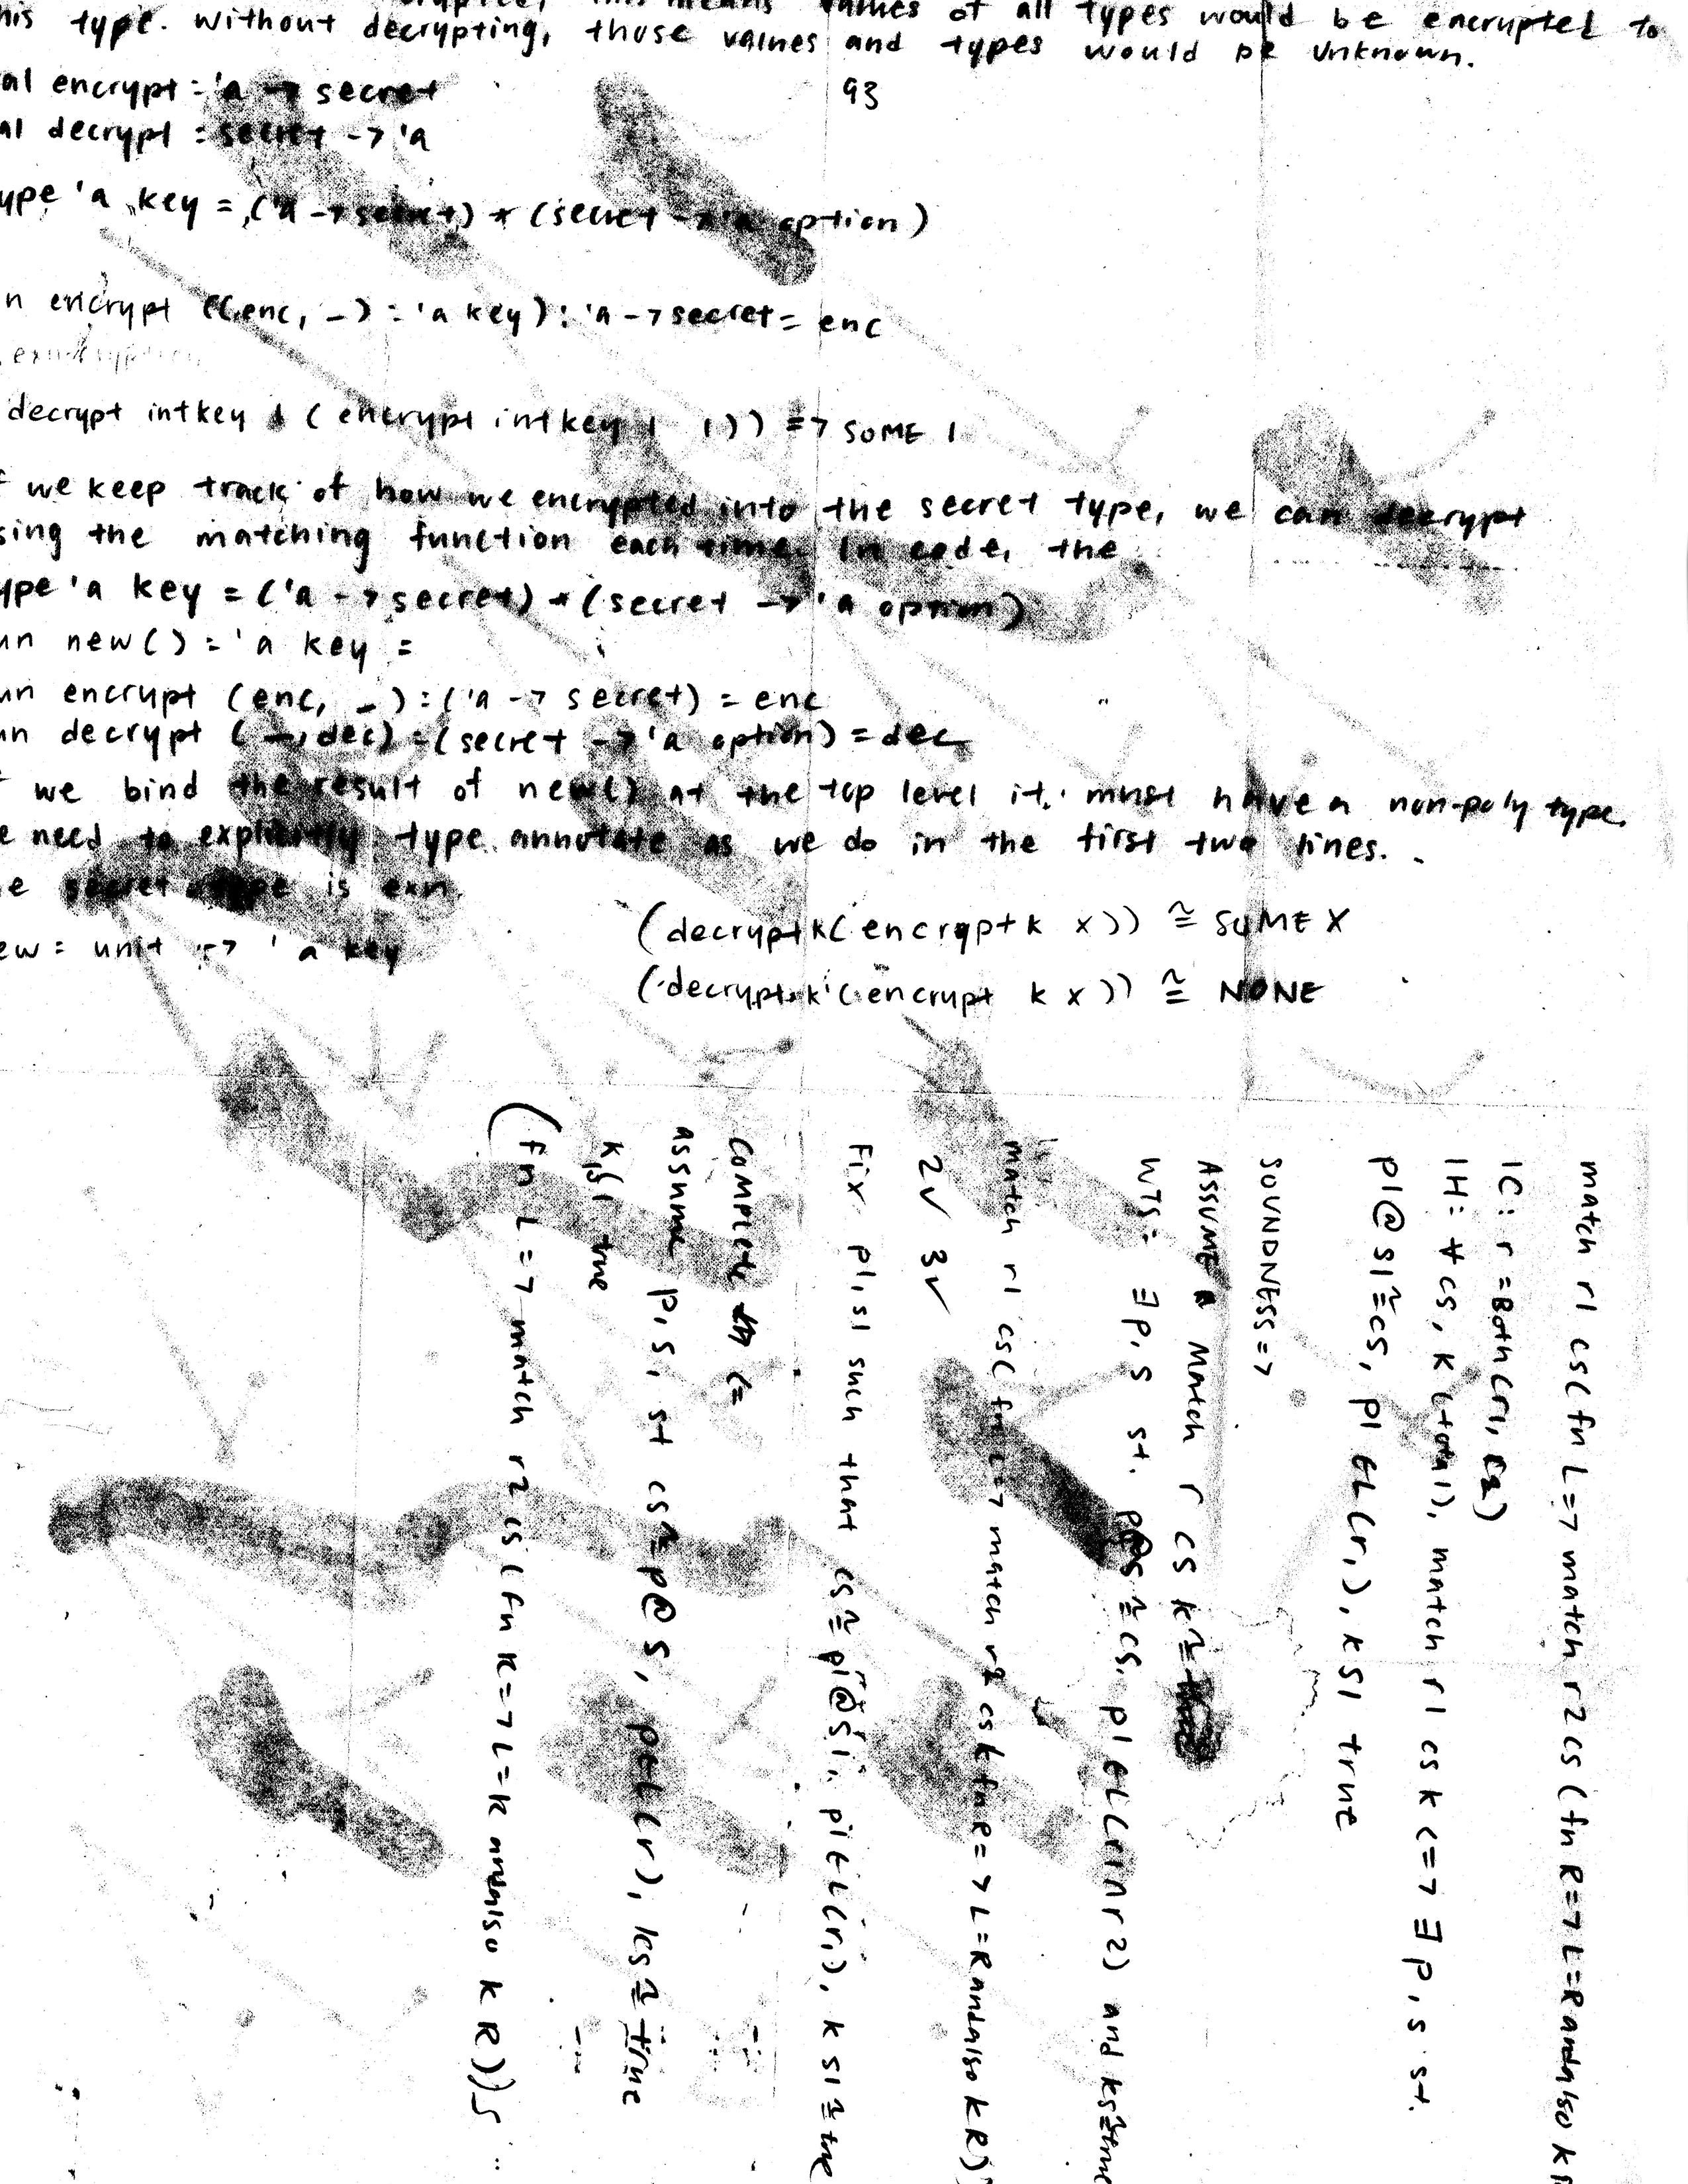 this means values of all types would be encrypted to
his type. without decrypting, those values and types would be unknown.
93
al encrypt : 'a -> secret
al decrypt : secret -> 'a
ype 'a key = ('a -> secret) * (secret -> 'a option)
n encrypt ((enc, _) : 'a key) : 'a -> secret = enc
decrypt intkey 1 (encrypt intkey 1 1)) => SOME 1
f we keep track of how we encrypted into the secret type, we can decrypt
sing the matching function each time. In code, the
ype 'a key = ('a -> secret) * (secret -> 'a option)
un new() : 'a key =
un encrypt (enc, _) : ('a -> secret) = enc
un decrypt (_, dec) : (secret -> 'a option) = dec
f we bind the result of new() at the top level it must have a non-poly type.
e need to explicitly type annotate as we do in the first two lines.
he secret type is exn.
ew : unit -> 'a key
(decrypt k (encrypt k x)) ≅ SOME X
(decrypt k' (encrypt k x)) ≅ NONE
match r1 cs (fn L => match r2 cs (fn R => L = R andalso k R
IC: r = Both (r1, r2)
IH: ∀ cs, k (total), match r1 cs k <=> ∃ p, s st.
p1 @ s1 ≅ cs, p1 ∈ L(r1), k s1 true
SOUNDNESS =>
ASSUME match r cs k ≅ true
WTS: ∃ p, s st. p@s ≅ cs, p1 ∈ L(r1 n r2) and ks ≅ true
match r1 cs (fn L => match r2 cs (fn R => L = R andalso k R)
2✓ 3✓
Fix p1, s1 such that cs ≅ p1@s1, p1 ∈ L(r1), k s1 ≅ true
COMPLETE <=
assume p, s, st cs ≅ p@s, p ∈ L(r), ks ≅ true
k s1 true
(fn L => match r2 cs (fn R => L = R andalso k R)) s